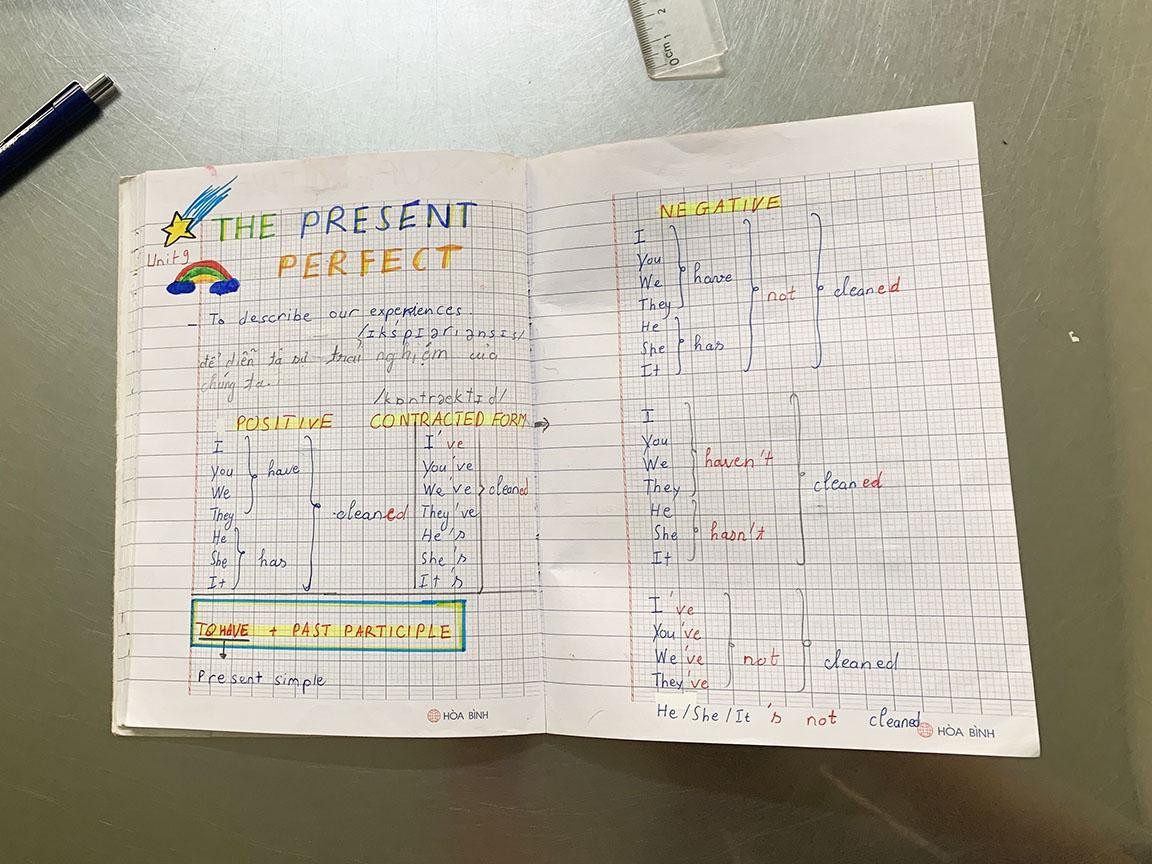 THE PRESENT
Unit 9
PERFECT
- To describe our experiences.
/ɪkˈspɪəriənsɪs/
để diễn tả sự trải nghiệm của
chúng ta.
/kɒntræktɪd/
POSITIVE CONTRACTED FORM →
I
You
We
They
have
He
She
It
has
cleaned
I've
You've
We've
They've
He's
She's
It's
cleaned
TO HAVE + PAST PARTICIPLE
Present simple
HÒA BÌNH
NEGATIVE
I
You
We
They
have
He
She
It
has
not
cleaned
I
You
We
They
haven't
He
She
It
hasn't
cleaned
I've
You've
We've
They've
not
cleaned
He/She/It's not cleaned
HÒA BÌNH
0cm 1 2